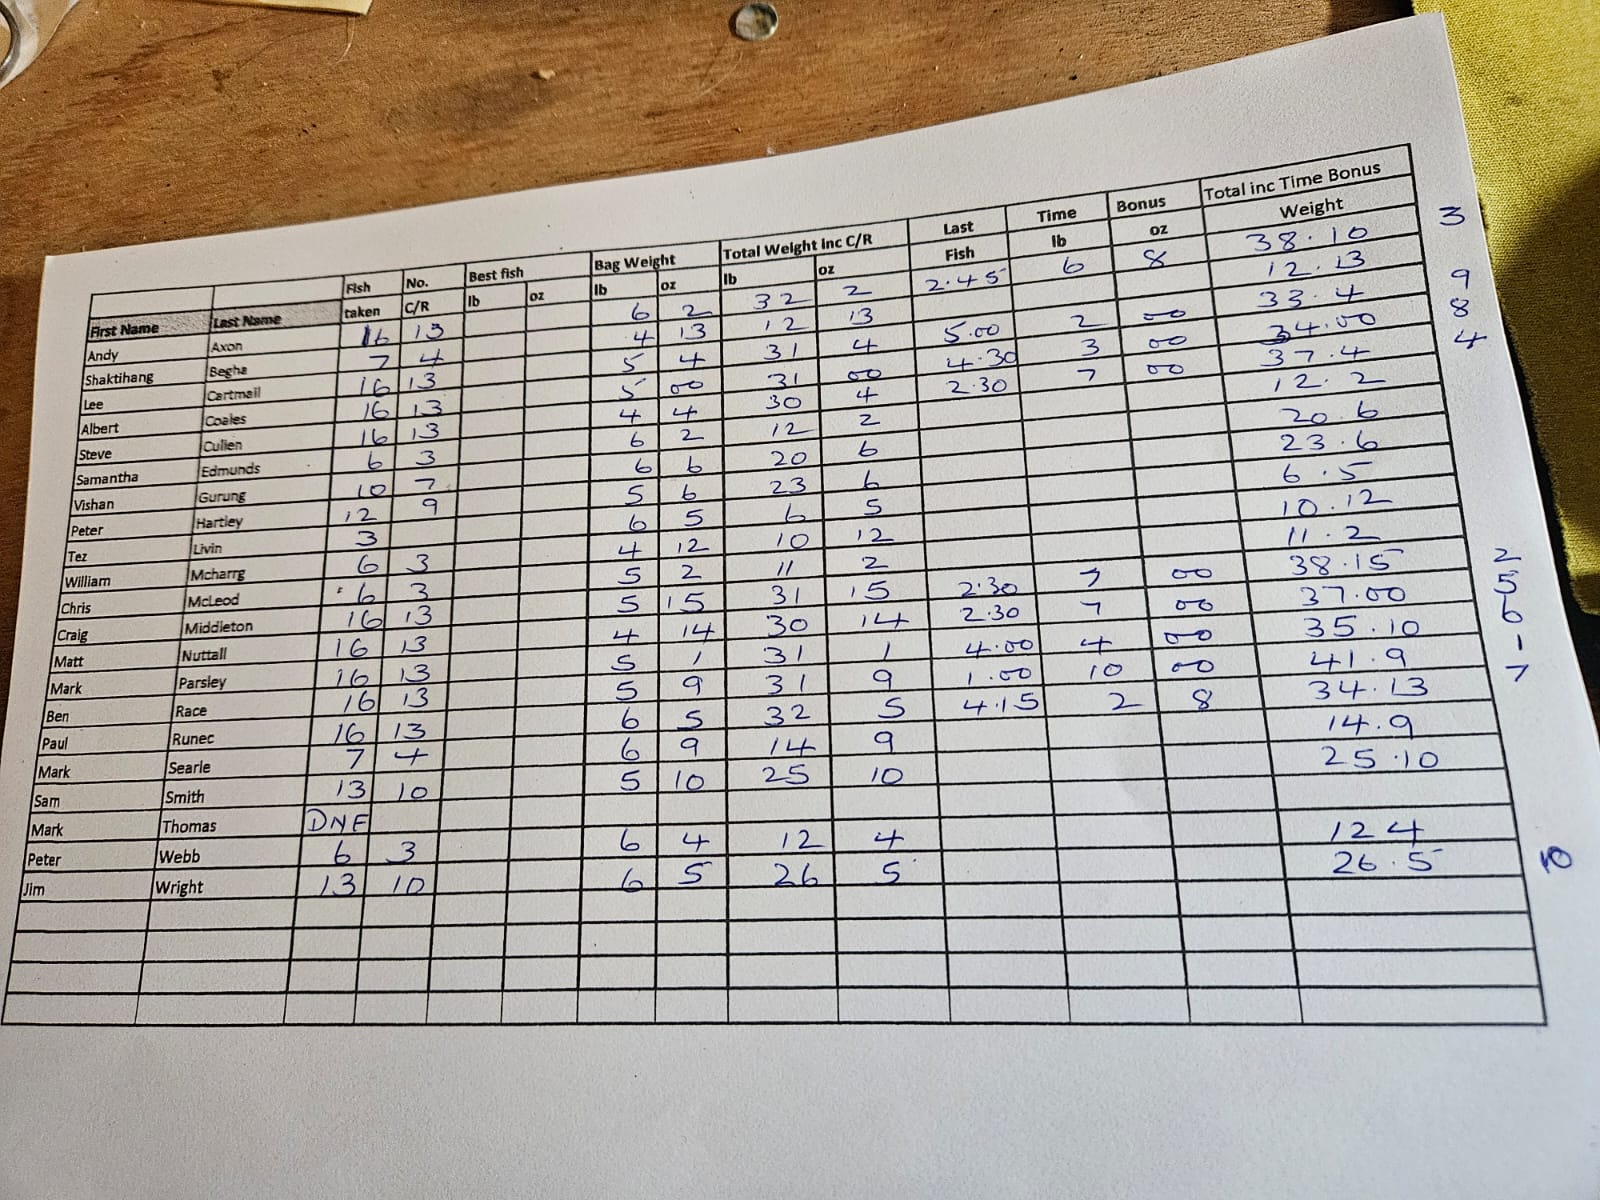 Fish No. Best fish Bag Weight Total Weight inc C/R Last Time Bonus Total inc Time Bonus
First Name Last Name taken C/R lb oz lb oz lb oz Fish lb oz Weight
Andy Axon 16 13 6 2 32 2 2.45 6 8 38.10 3
Shaktihang Begha 7 4 4 13 12 13 12.13
Lee Cartmail 16 13 5 4 31 4 5.00 2 00 33.4 9
Albert Coales 16 13 5 00 31 00 4.30 3 00 34.00 8
Steve Cullen 16 13 4 4 30 4 2.30 7 00 37.4 4
Samantha Edmunds 6 3 6 2 12 2 12.2
Vishan Gurung 10 7 6 6 20 6 20.6
Peter Hartley 12 9 5 6 23 6 23.6
Tez Livin 3 6 5 6 5 6.5
William Mcharrg 6 3 4 12 10 12 10.12
Chris McLeod 6 3 5 2 11 2 11.2
Craig Middleton 16 13 5 15 31 15 2.30 7 00 38.15 2
Matt Nuttall 16 13 4 14 30 14 2.30 7 00 37.00 5
Mark Parsley 16 13 5 1 31 1 4.00 4 00 35.10 6
Ben Race 16 13 5 9 31 9 1.00 10 00 41.9 1
Paul Runec 16 13 6 5 32 5 4.15 2 8 34.13 7
Mark Searle 7 4 6 9 14 9 14.9
Sam Smith 13 10 5 10 25 10 25.10
Mark Thomas DNF
Peter Webb 6 3 6 4 12 4 12 4
Jim Wright 13 10 6 5 26 5 26.5 10